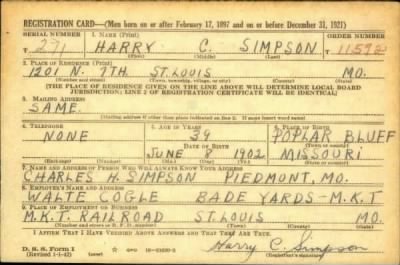 REGISTRATION CARD—(Men born on or after February 17, 1897 and on or before December 31, 1921)
SERIAL NUMBER 1. NAME (Print) ORDER NUMBER
T 271 HARRY C. SIMPSON 11592
(First) (Middle) (Last)
2. PLACE OF RESIDENCE (Print)
1201 N. 7TH ST. LOUIS MO.
(Number and street) (Town, township, village, or city) (County) (State)
[THE PLACE OF RESIDENCE GIVEN ON THE LINE ABOVE WILL DETERMINE LOCAL BOARD
JURISDICTION; LINE 2 OF REGISTRATION CERTIFICATE WILL BE IDENTICAL]
3. MAILING ADDRESS
SAME.
[Mailing address if other than place indicated on line 2. If same insert word same]
4. TELEPHONE 5. AGE IN YEARS 6. PLACE OF BIRTH
NONE 39 POPLAR BLUFF
DATE OF BIRTH (Town or county)
JUNE 8 1902 MISSOURI
(Exchange) (Number) (Mo.) (Day) (Yr.) (State or country)
7. NAME AND ADDRESS OF PERSON WHO WILL ALWAYS KNOW YOUR ADDRESS
CHARLES H. SIMPSON PIEDMONT, MO.
8. EMPLOYER'S NAME AND ADDRESS
WALTE COGLE BADE YARDS - M.K.T
9. PLACE OF EMPLOYMENT OR BUSINESS
M.K.T. RAILROAD ST. LOUIS MO.
(Number and street or R. F. D. number) (Town) (County) (State)
I AFFIRM THAT I HAVE VERIFIED ABOVE ANSWERS AND THAT THEY ARE TRUE.
D. S. S. Form 1
(Revised 1-1-42) Harry C. Simpson
(Registrant's signature)